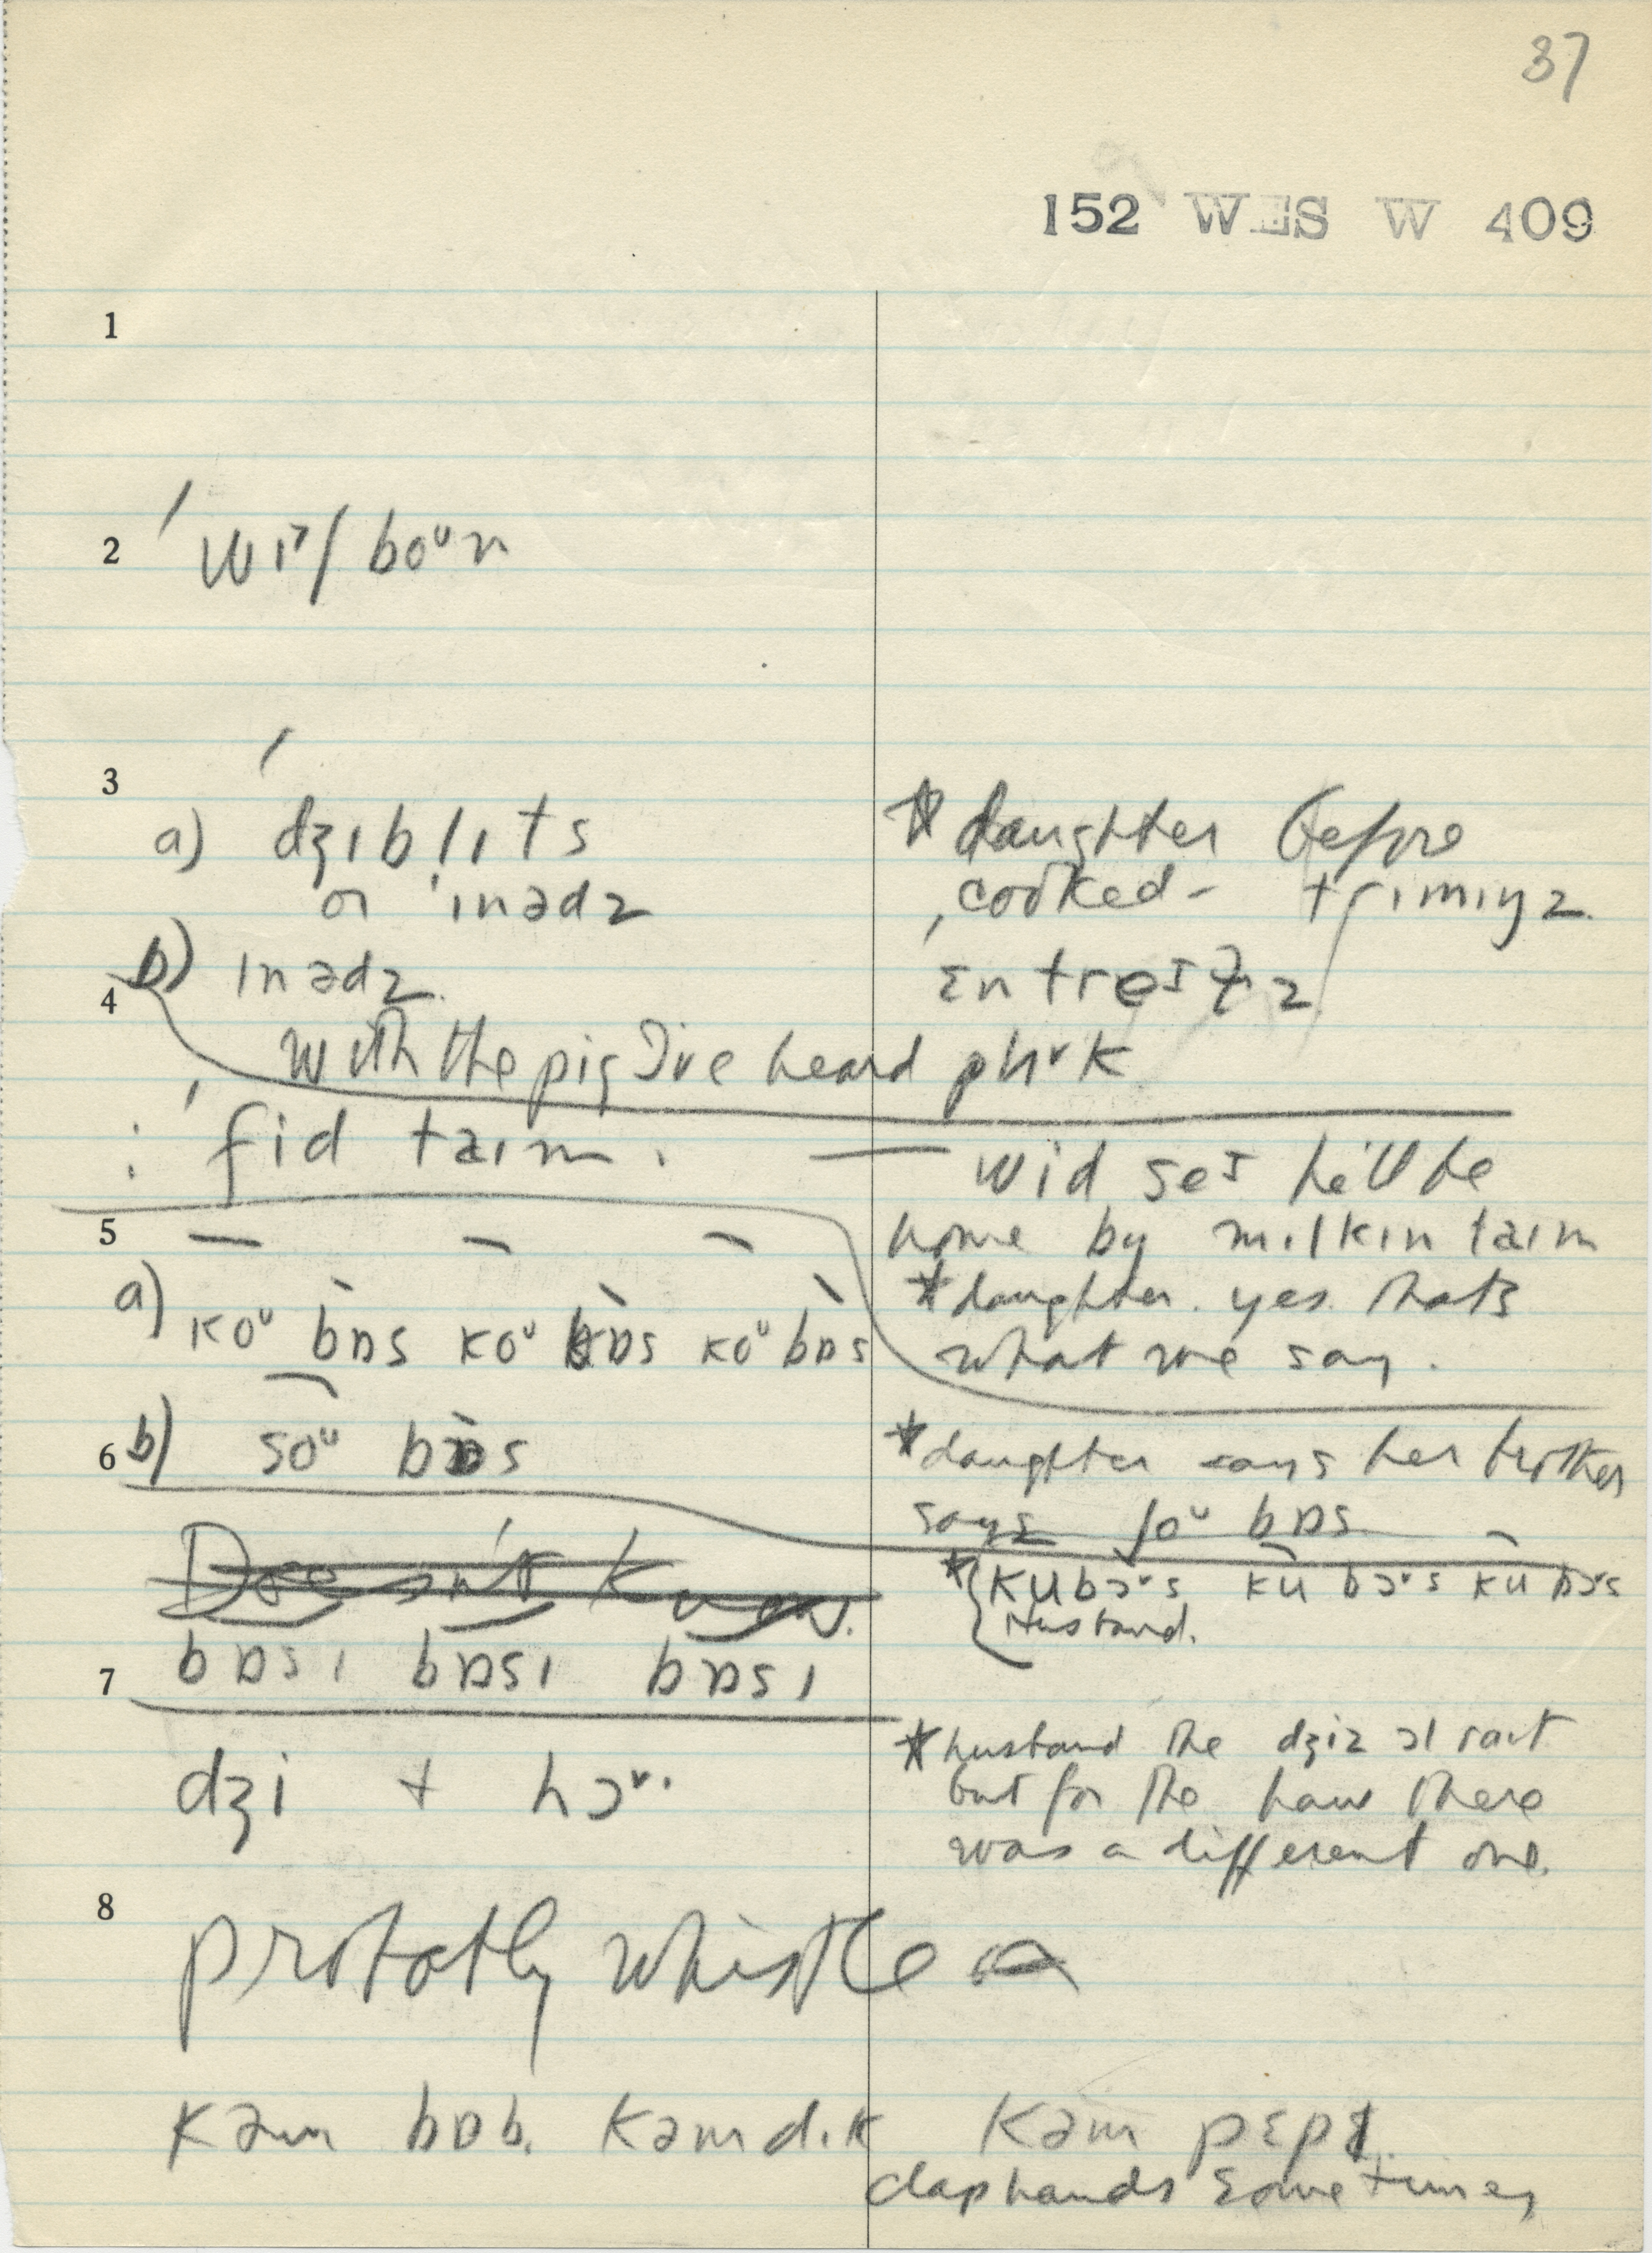 37
152 WES W 409
1
2 wɪʃ boᵘn
3
a) dʒɪblɪts
or ˈɪnədz
b) ɪnədz.
4
with the pig I've heard plʌk
* daughter before
cooked - trɪmɪŋz.
ɛntreɪlz
: fid taɪm. — wid seɪ he'll be
home by mɪlkɪn taɪm
* daughter. yes that's
what we say.
5
a) koᵘ bɒs koᵘ bɒs koᵘ bɒs
6 b) soᵘ bɒs
* daughter says her brother
says ʃoᵘ bɒs
Doesn't know.
bɒsɪ bɒsɪ bɒsɪ
* kubɔs ku bɔs ku bɔs
Husband.
7
dʒi + hɔ.
* husband the dʒiz ɔl raɪt
but for the haw there
was a different one.
8
probably whistle
kəm bɒb. kəm dɪk kəm pɛpɪ.
clap hands sometimes